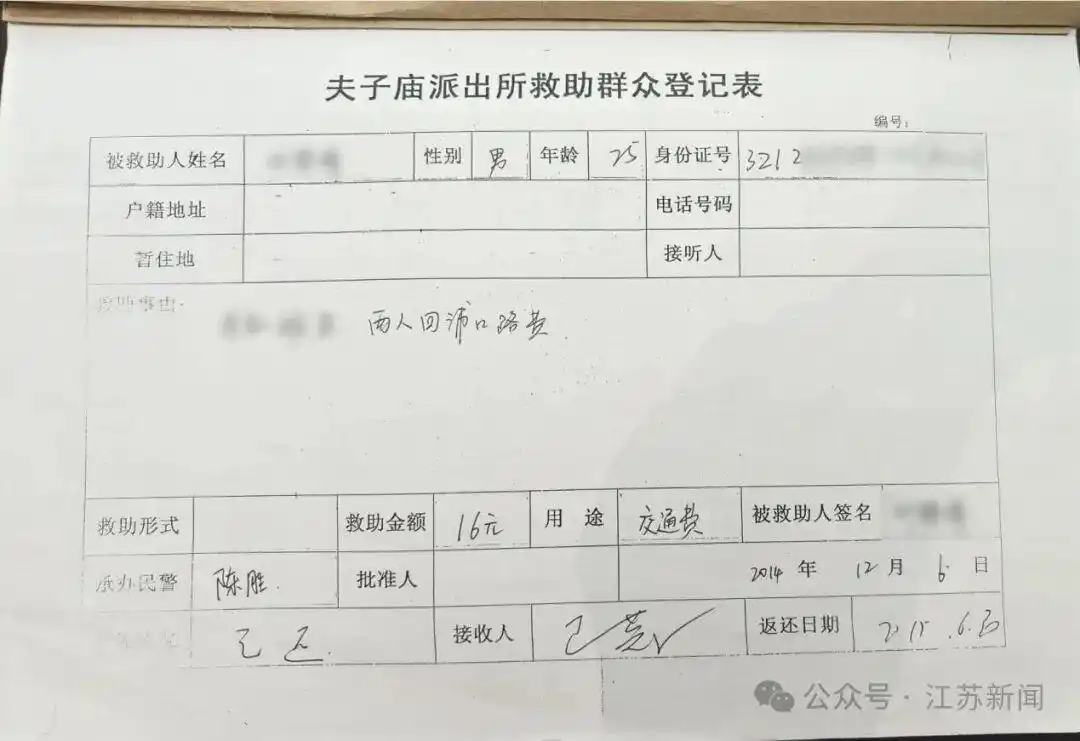 夫子庙派出所救助群众登记表
编号：
被救助人姓名 性别 男 年龄 25 身份证号 3212
户籍地址 电话号码
暂住地 接听人
救助事由：
两人回浦口路费
救助形式 救助金额 16元 用 途 交通费 被救助人签名
承办民警 陈胜. 批准人 2014 年 12 月 6 日
已还. 接收人 返还日期 2015.6.30
公众号·江苏新闻